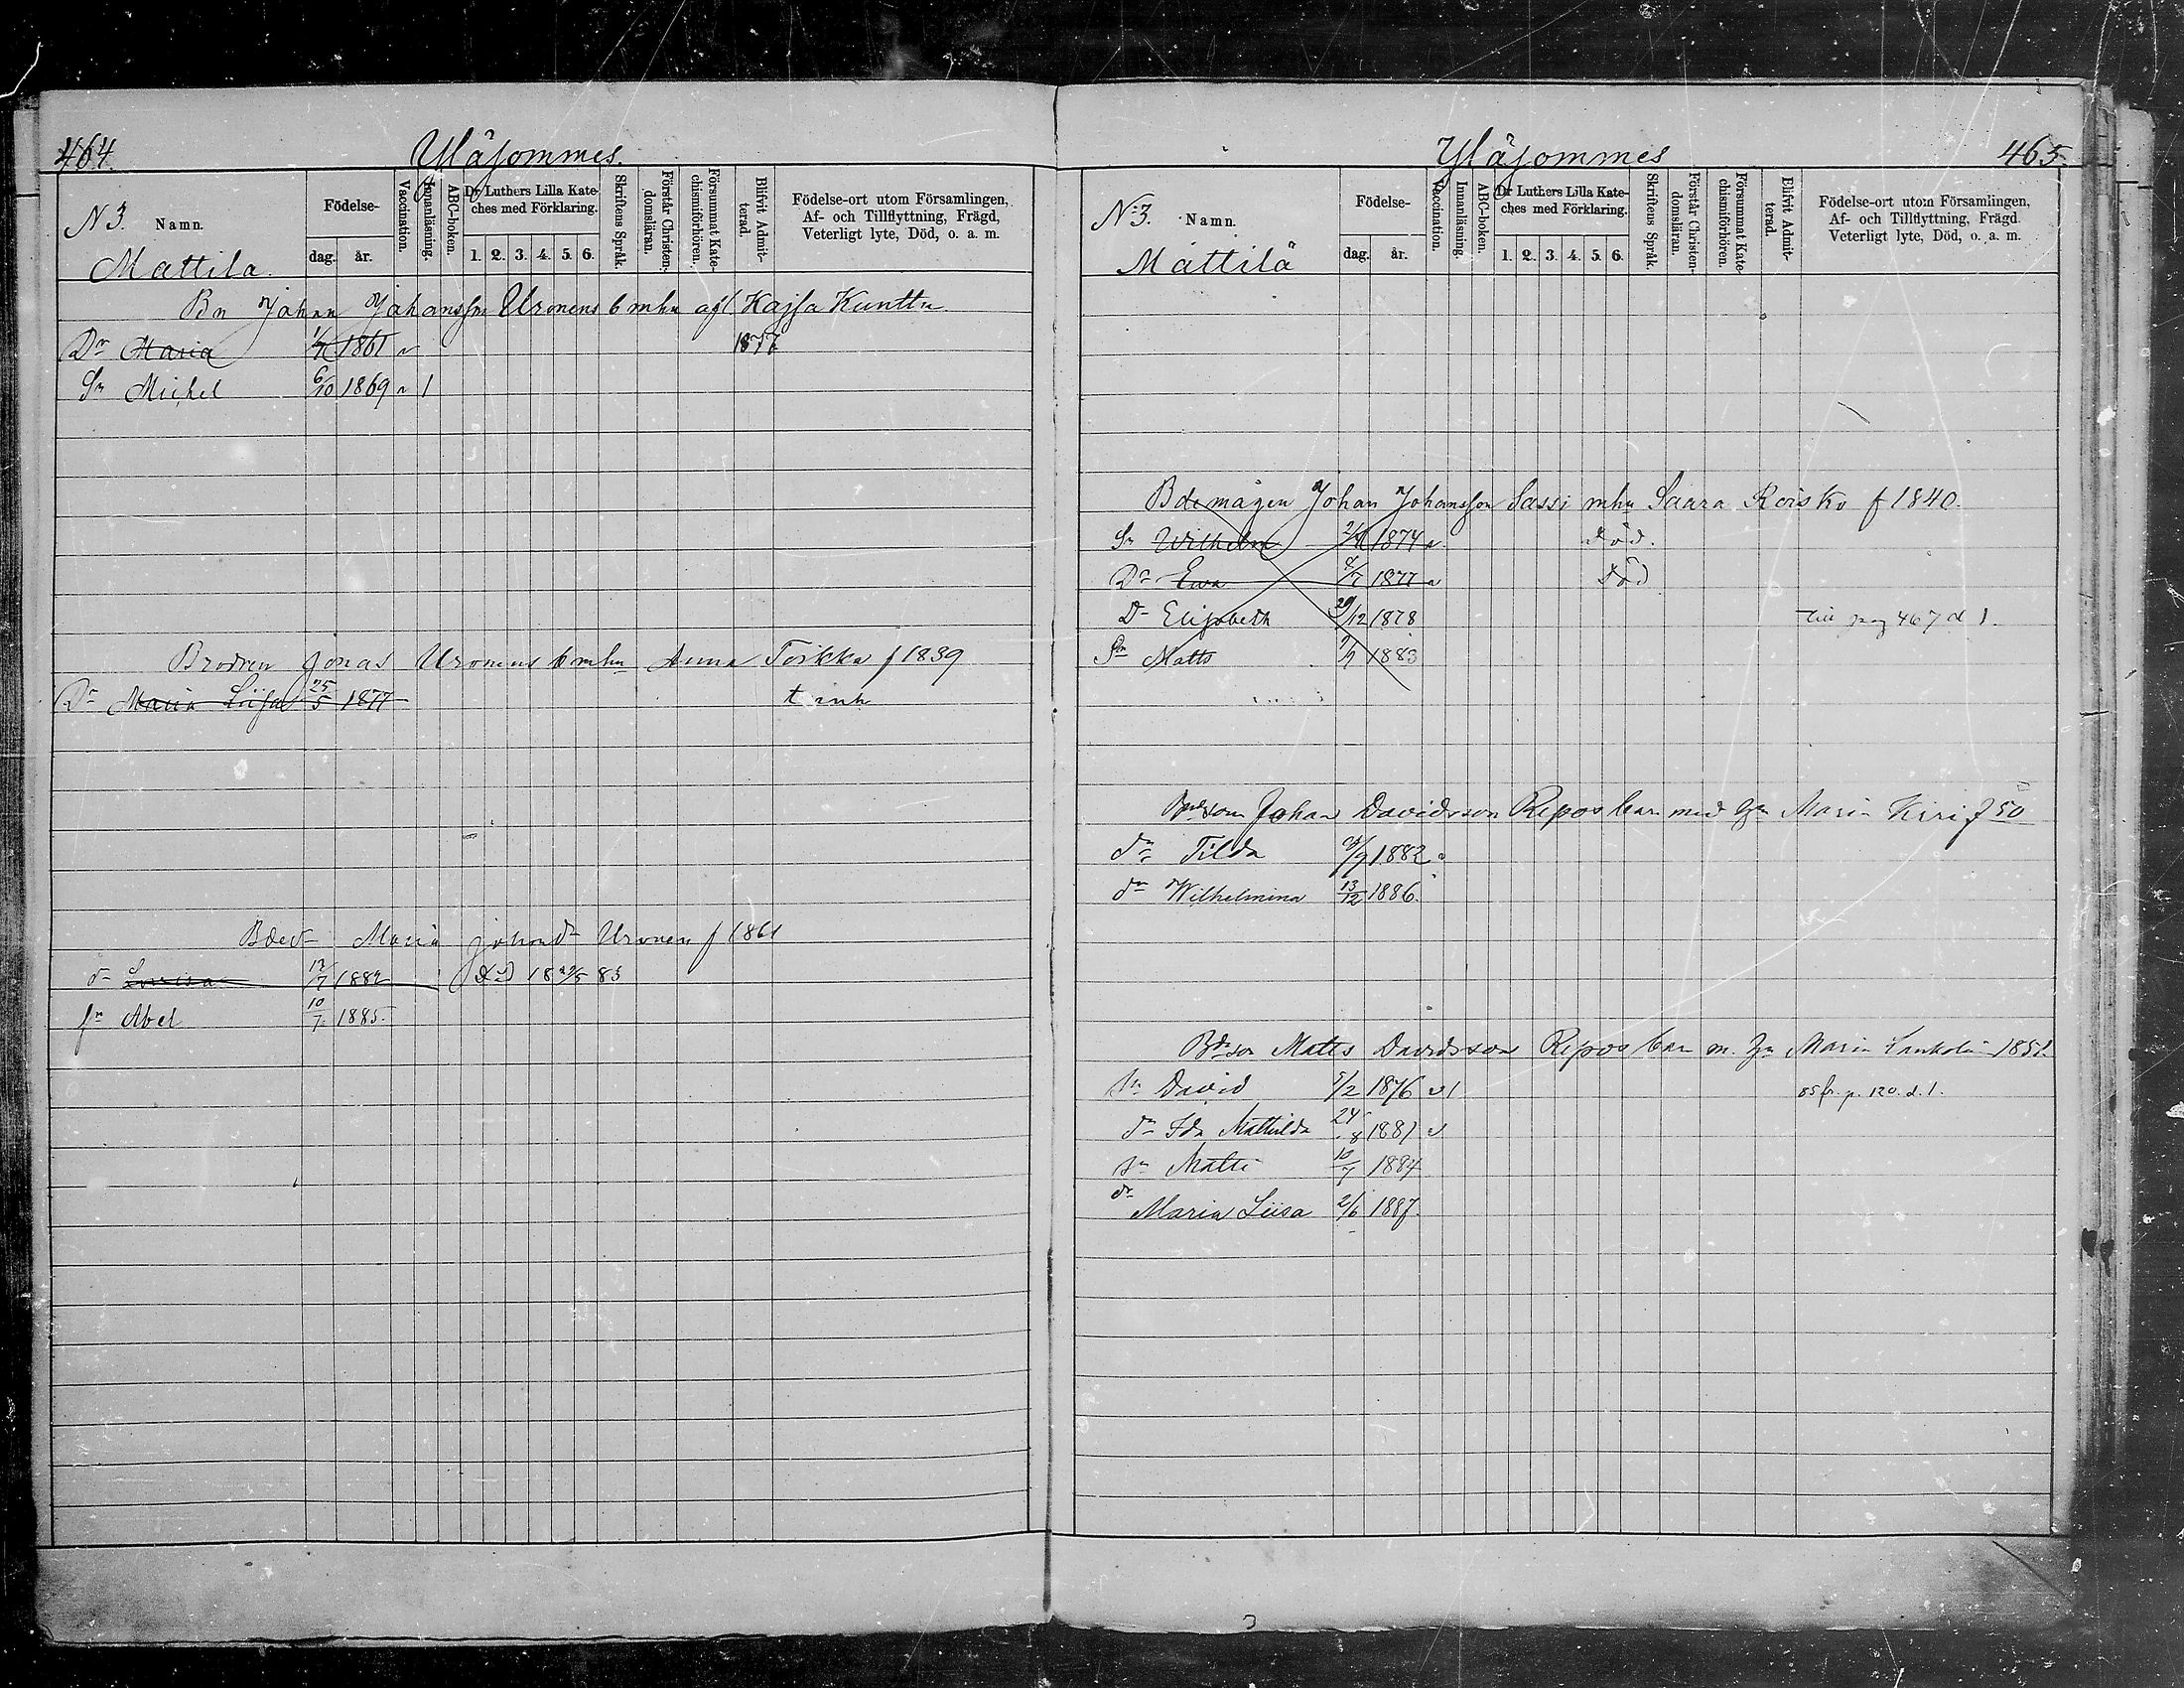 464.
Yläjommes.
N 3. Namn.
Mattila.
Födelse-
dag. år.
Vaccination.
Innanläsning.
ABC-boken.
Dr Luthers Lilla Kate-
ches med Förklaring.
1. 2. 3. 4. 5. 6.
Skriftens Språk.
Förstår Christen-
domsläran.
Försummat Kate-
chismiförhören.
Blifvit Admit-
terad.
Födelse-ort utom Församlingen,
Af- och Tillflyttning, Frägd,
Veterligt lyte, Död, o. a. m.
Bn Johan Johansson Uronens b mhu afl Kajsa Kunttu
Dr Maria 1861 v 1877
Sn Michel 6/10 1869 v 1
Brodren Jonas Uronens b mhu Anna Toikka f 1839
Dr Maria Liisa 25/5 1877
Maria Johansdr Uronen f 1861
dr 1882 83
sn Abel 10/7 1885.
Yläjommes
465.
N:3. Namn.
Mattila
Födelse-
dag. år.
Vaccination.
Innanläsning.
ABC-boken.
Dr Luthers Lilla Kate-
ches med Förklaring.
1. 2. 3. 4. 5. 6.
Skriftens Språk.
Förstår Christen-
domsläran.
Försummat Kate-
chismiförhören.
Blifvit Admit-
terad.
Födelse-ort utom Församlingen,
Af- och Tillflyttning, Frägd
Veterligt lyte, Död, o. a. m.
Bdemågen Johan Johansson Sassi mhu Saara Roisko f 1840.
Sn Wilhelm 1874 v. Död.
Dr Ewa 1877 v Död
Dr Elisabeth 29/12 1878 till pag 467 d 1.
Sn Matts 1883
Johan Davidsson Repos barn med hu Maria Kiri f 50
dr Tilda 1882
dr Wilhelmina 13/12 1886.
Bdeson Matts Davidsson Repos barn m. hu Maria 1851
sn David 5/2 1876 v 1 85 fr. p. 120. d. 1.
dr Ida Mathilda 24/8 1881 v
sn Matti 10/7 1884
dr Maria Liisa 2/6 1887.